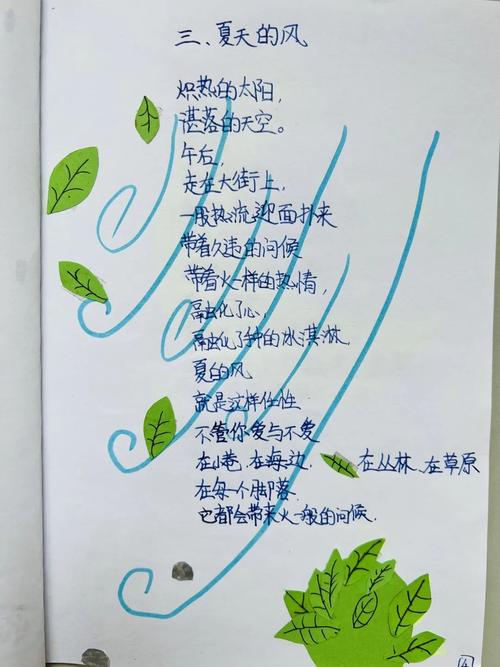 三、夏天的风
炽热的太阳，
湛落的天空。
午后，
走在大街上，
一股热流迎面扑来
带着久违的问候
带着火一样的热情，
融化了心，
融化了钟的冰淇淋
夏的风
就是这样任性
不管你爱与不爱
在小巷，在海边，在丛林、在草原
在每一个脚落
它都会带来火一般的问候.
4